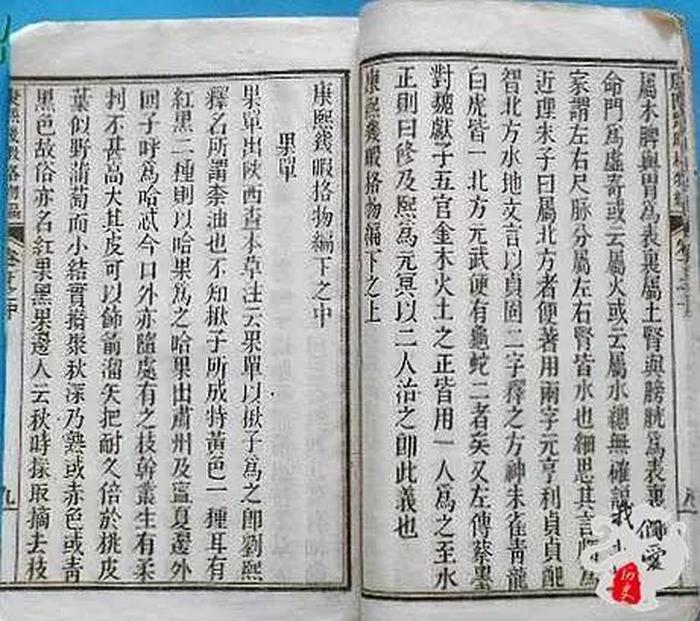 屬木脾與胃爲表裏屬土腎與膀胱爲表裏
命門爲虛寄或云屬火或云屬水總無確論
家謂左右尺脉分屬左右腎皆水也細思其言
近理朱子曰屬北方者便著用兩字元亨利貞貞配
智北方水地文言以貞固二字釋之方神朱雀青龍
白虎皆一北方元武便有龜蛇二者矣又左傳蔡墨
對魏獻子五官金木火土之正皆用一人爲之至水
正則曰修及熙爲元冥以二人治之卽此義也
康熙幾暇格物編下之上
康熙幾暇格物編下之中
果單
果單出陝西查本草注云果單以楸子爲之卽劉熙
釋名所謂柰油也不知楸子所成特黃色一種耳有
紅黑二種則以哈果爲之哈果出肅州及寧夏邊外
回子呼爲哈忒今口外亦隨處有之枝幹叢生有柔
刺不甚高大其皮可以飾箭溜矢把耐久倍於桃皮
葉似野蒲萄而小結實攢聚秋深乃熟或赤色或青
黑色故俗亦名紅果黑果邊人云秋時採取摘去枝
康熙幾暇格物編
九
我們愛
历史